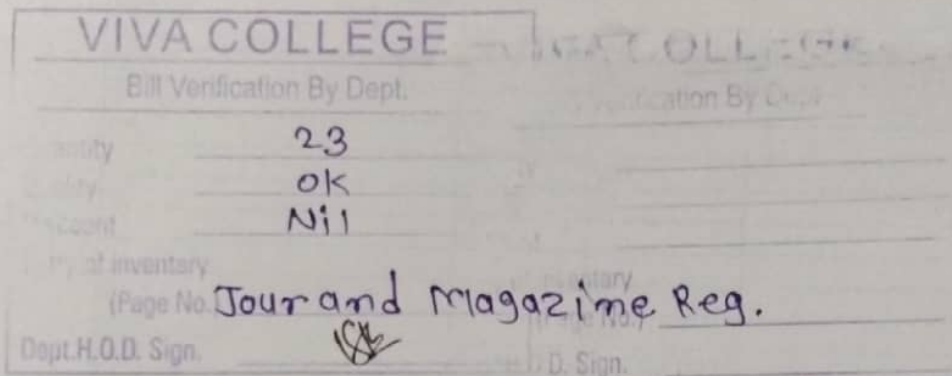 VIVA COLLEGE
Bill Verification By Dept.
23
OK
Nil
of inventory
(Page No. Jour and Magazine Reg.
Dept.H.O.D. Sign.
D. Sign.